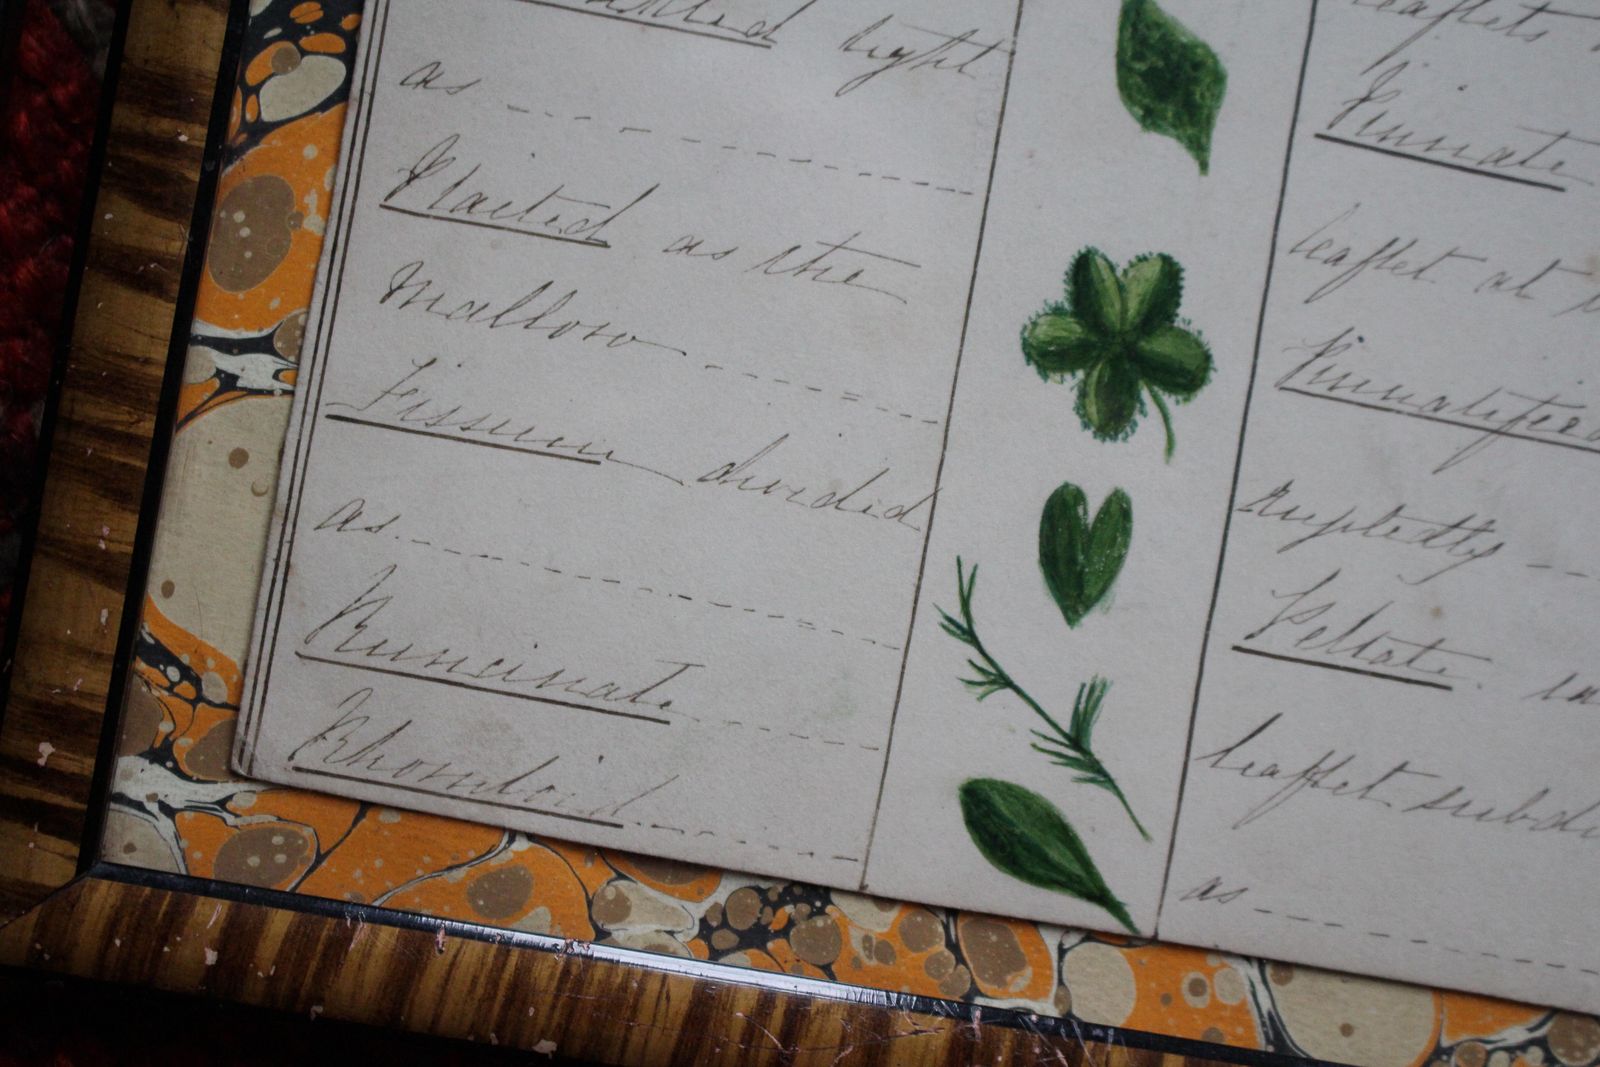 light
as
Plaited as the
Mallow
Fissum divided
as
Runcinate
Rhomboid
leaflets
Pinnate
leaflet at
Pinnatified
Peltate
leaflet subdi
as